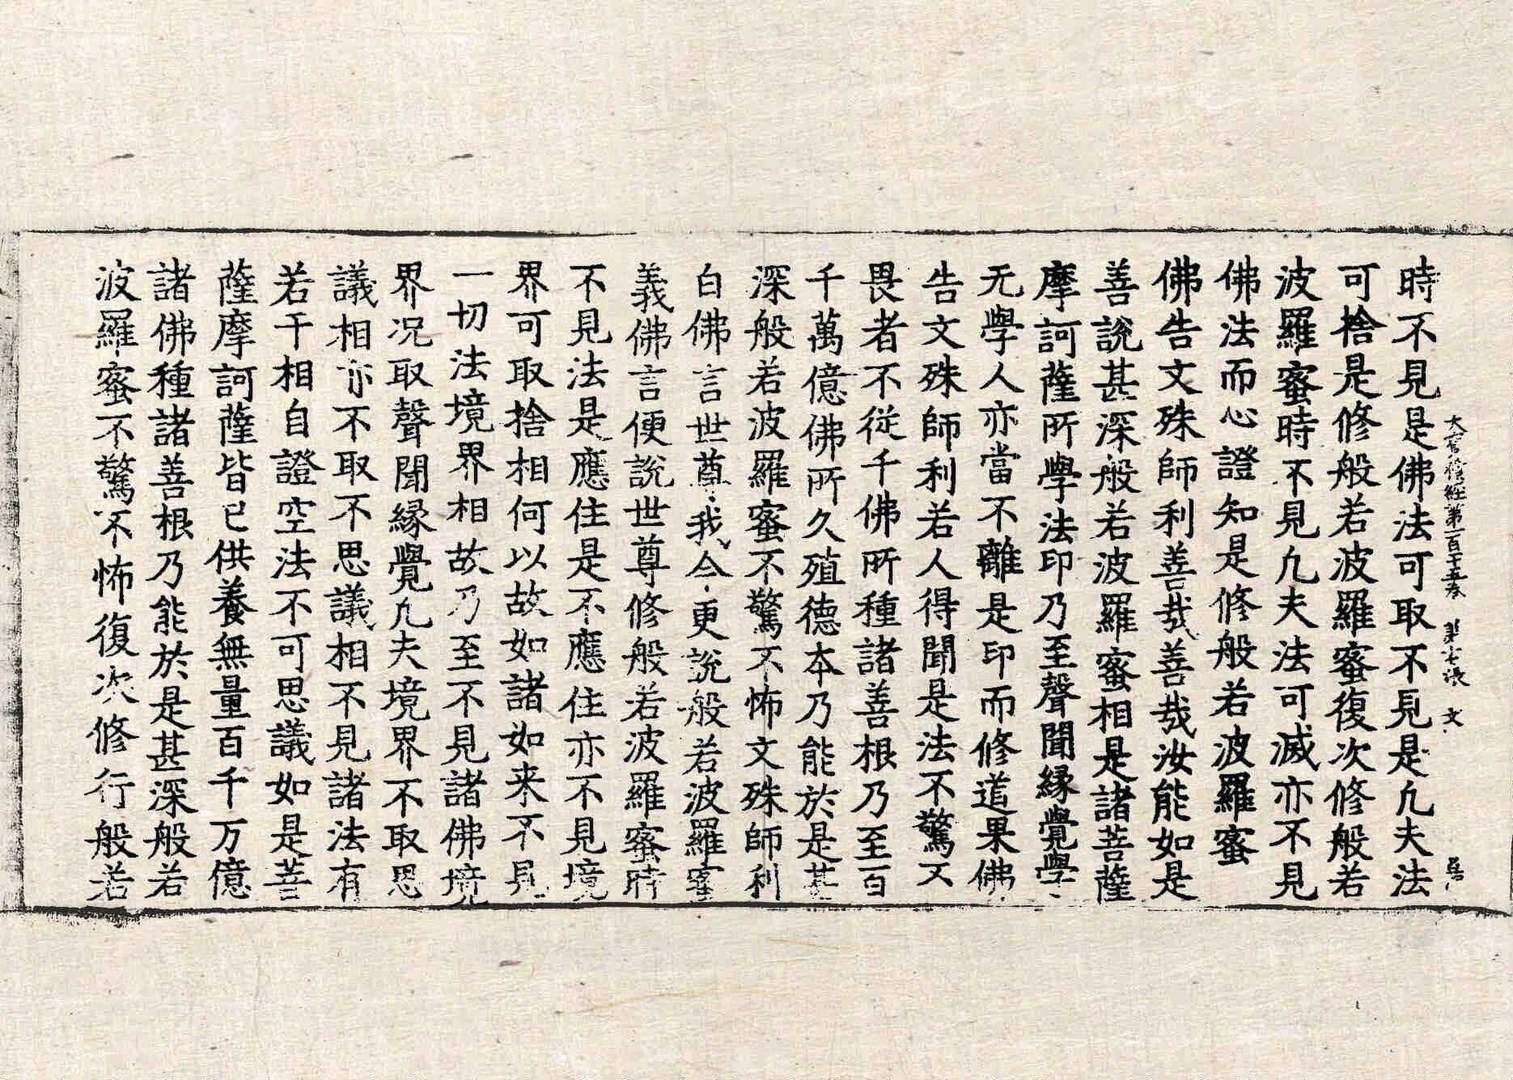 大寶積經第一百十五卷 第七張 文
時不見是佛法可取不見是凢夫法
可捨是修般若波羅蜜復次修般若
波羅蜜時不見凢夫法可滅亦不見
佛法而心證知是修般若波羅蜜
佛告文殊師利善哉善哉汝能如是
善說甚深般若波羅蜜相是諸菩薩
摩訶薩所學法印乃至聲聞緣覺學
无學人亦當不離是印而修道果佛
告文殊師利若人得聞是法不驚不
畏者不従千佛所種諸善根乃至百
千萬億佛所久殖德夲乃能於是甚
深般若波羅蜜不驚不怖文殊師利
白佛言世尊我今更說般若波羅蜜
義佛言便說世尊修般若波羅蜜時
不見法是應住是不應住亦不見境
界可取捨相何以故如諸如来不見
一切法境界相故乃至不見諸佛境
界况取聲聞緣覺凢夫境界不取思
議相亦不取不思議相不見諸法有
若干相自證空法不可思議如是菩
薩摩訶薩皆已供養無量百千万億
諸佛種諸善根乃能於是甚深般若
波羅蜜不驚不怖復次修行般若